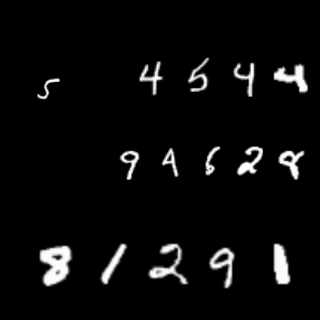 5 4 5 4 4
9 4 6 2 8
8 1 2 9 1